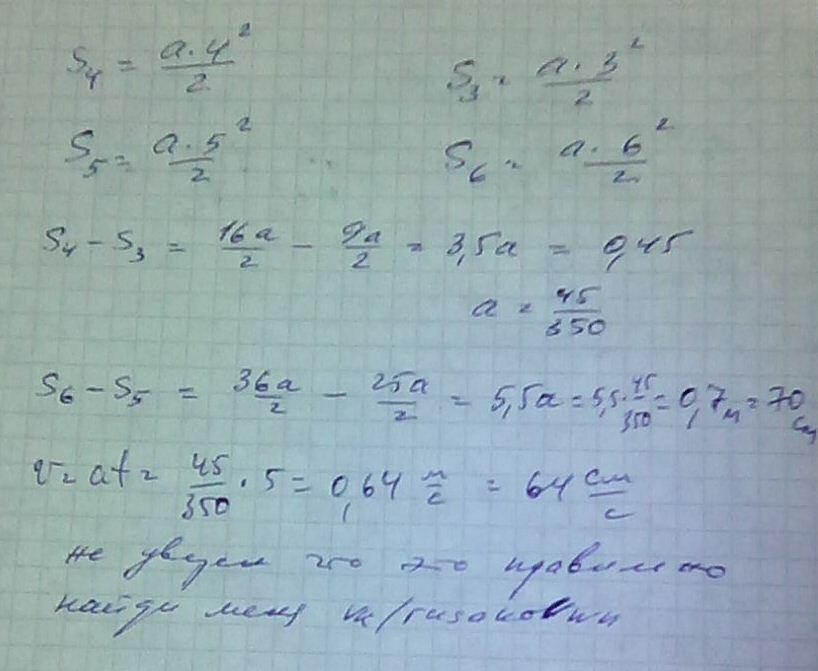 S₄ = a·4²/2 S₃ = a·3²/2
S₅ = a·5²/2 S₆ = a·6²/2
S₄ - S₃ = 16a/2 - 9a/2 = 3,5a = 0,45
a = 45/350
S₆ - S₅ = 36a/2 - 25a/2 = 5,5a = 5,5·45/350 = 0,7 м = 70 см
v = at = 45/350 · 5 = 0,64 м/с = 64 см/с
не уверен что это правильно
найди меня